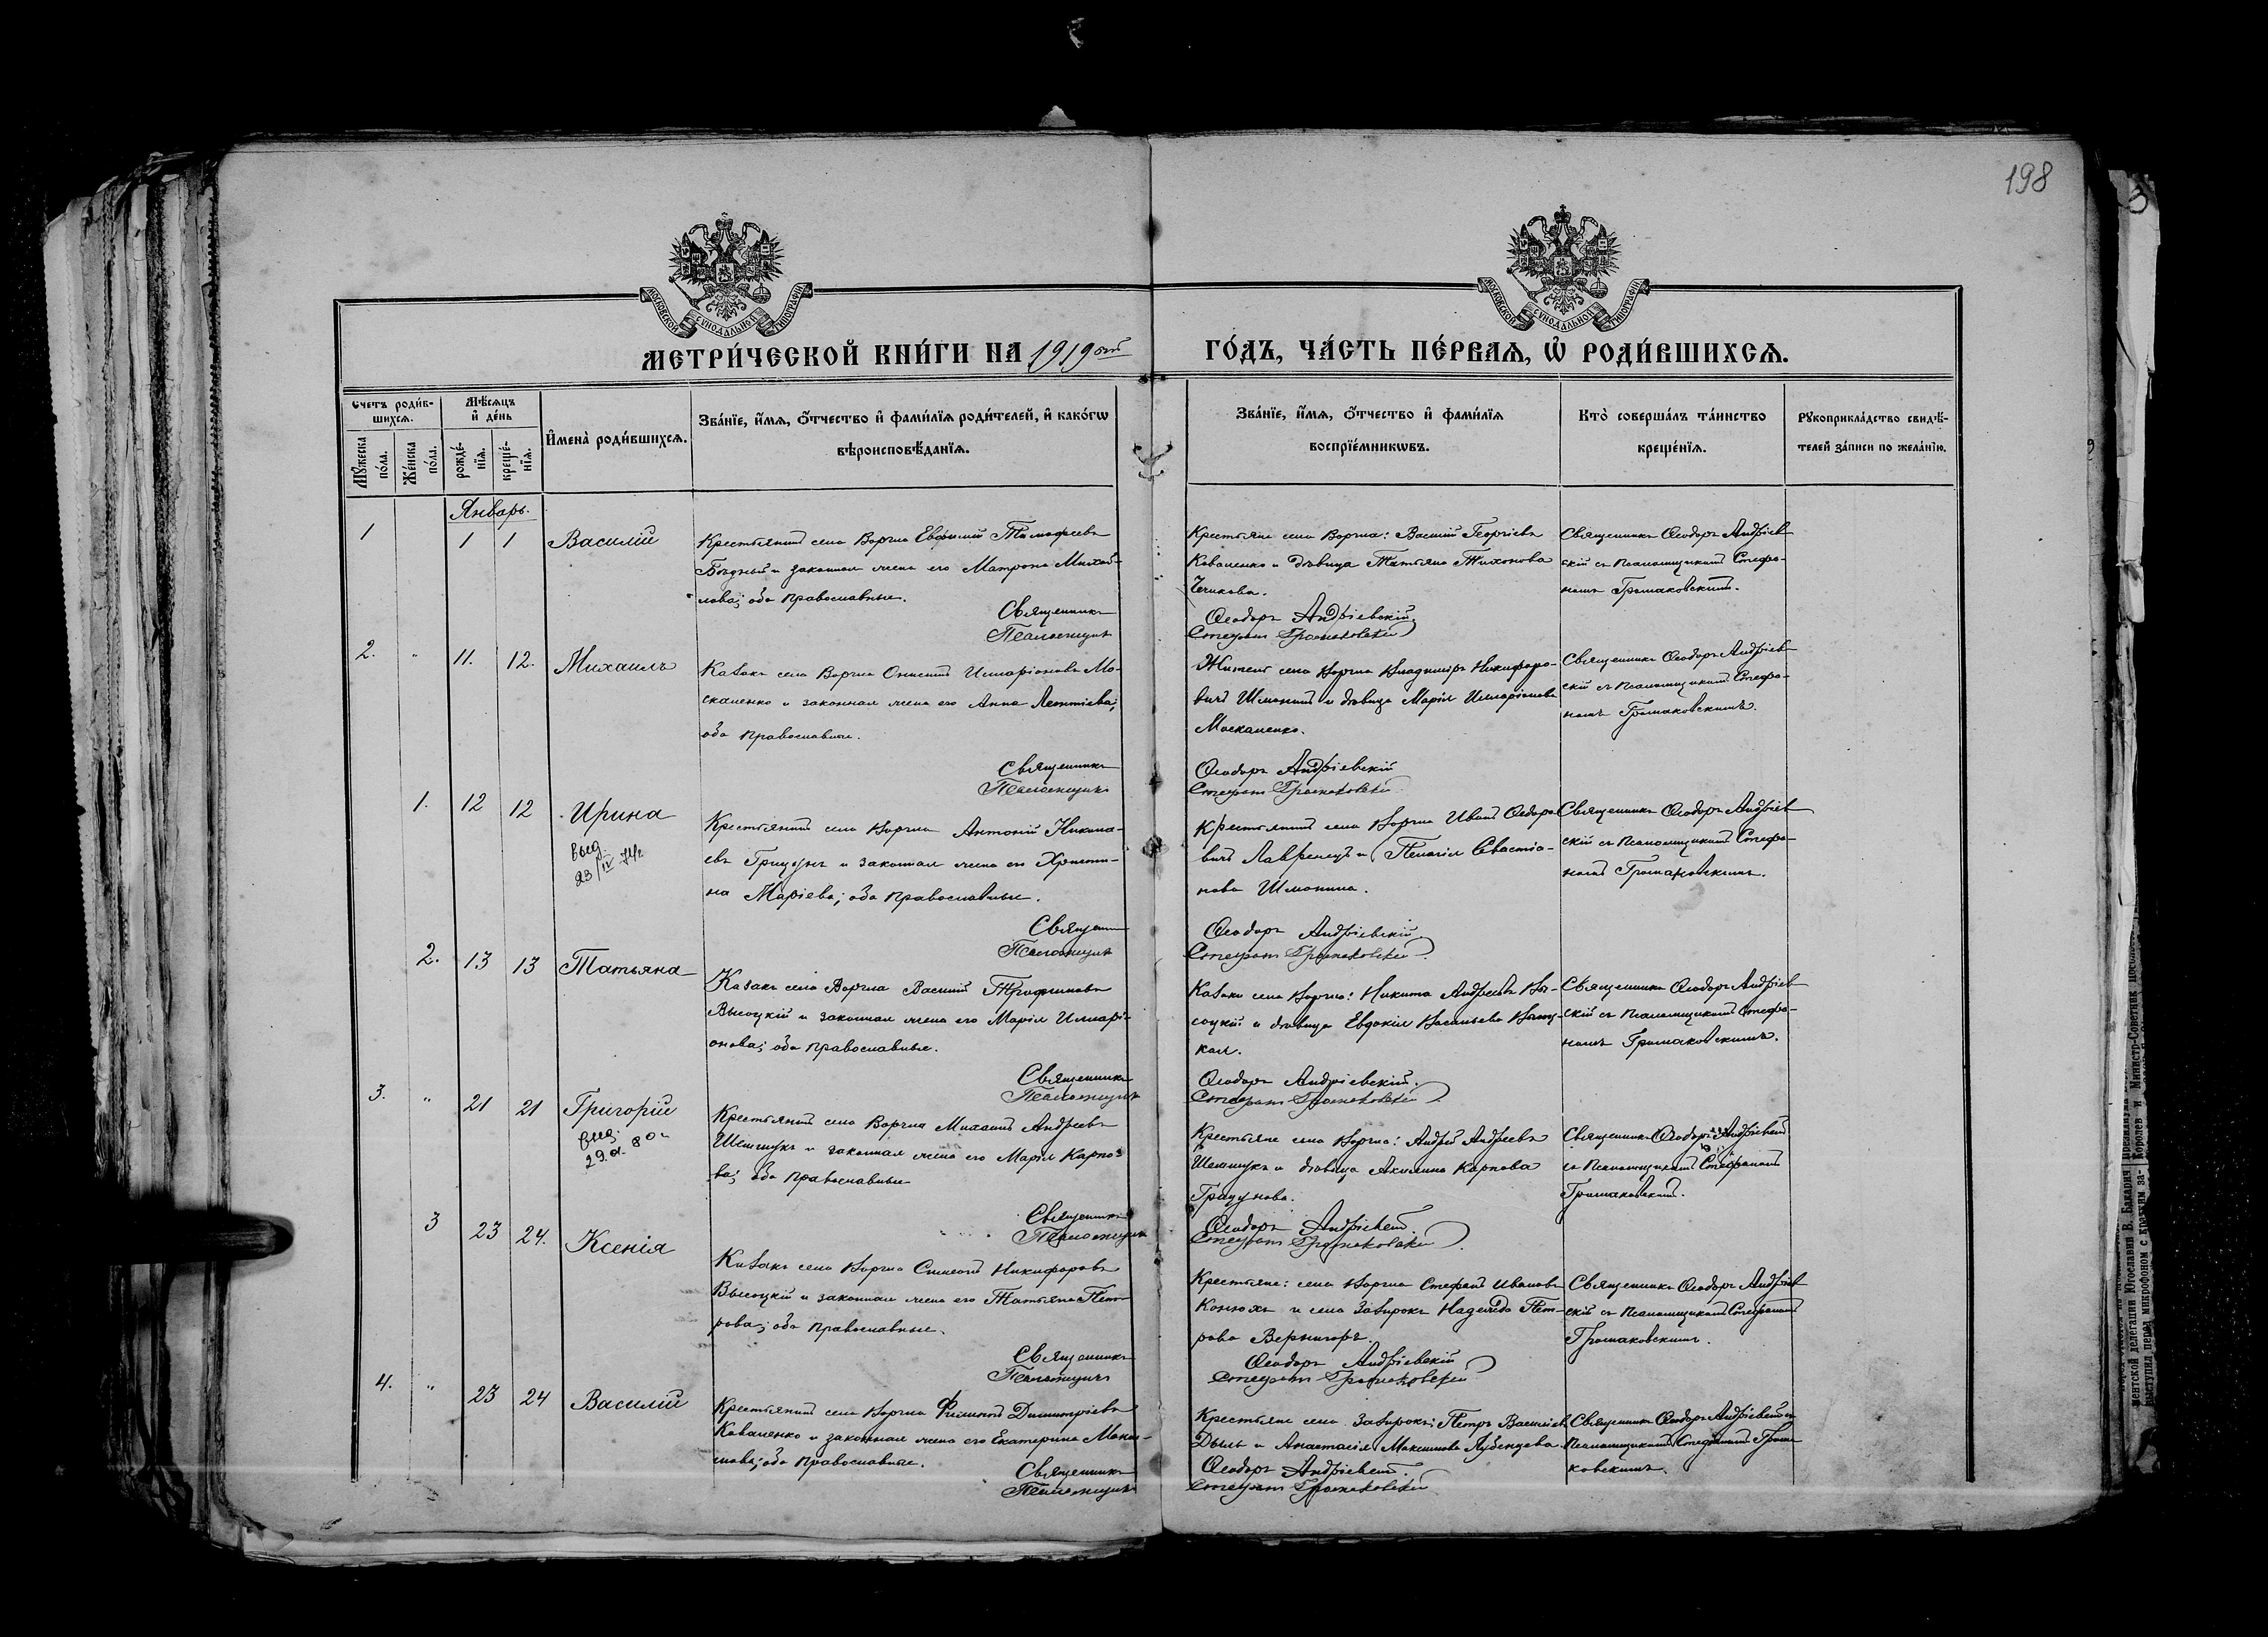 198
МОСКОВСКОЙ СѴНОДАЛЬНОЙ ТИПОГРАФІИ
МОСКОВСКОЙ СѴНОДАЛЬНОЙ ТИПОГРАФІИ
МЕТРИ́ЧЕСКОЙ КНИ́ГИ НА 1919ый ГО́ДЪ, ЧА́СТЬ ПЕ́РВАѦ, Ѡ҆ РОДИ́ВШИХСѦ.
Счетъ роди́в-
шихсѧ.
Мѣ́сѧцъ
и҆ де́нь
Мꙋ́жеска
по́ла.
Же́нска
по́ла.
рожде́-
нїѧ.
креще́-
нїѧ.
И҆мена̀ роди́вшихсѧ.
Зва́нїе, и҆́мѧ, ѻ҆́тчество и҆ фами́лїѧ роди́телей, и҆ како́гѡ
вѣроисповѣ́данїѧ.
Зва́нїе, и҆́мѧ, ѻ҆́тчество и҆ фами́лїѧ
воспрїе́мникѡвъ.
Кто̀ соверша́лъ та́инство
креще́нїѧ.
Рꙋкоприкла́дство свидѣ́-
телей за́писи по жела́нїю.
Январь.
1 1 1 Василій
Крестьянинъ села Воргла Евфимій Тимофеевъ
Бѣдный и законная жена его Матрона Михай-
лова; оба православные.
Священникъ
Псаломщикъ
Крестьяне села Воргла: Василій Георгіевъ
Коваленко и дѣвица Татьяна Тихонова
Чечикова.
Ѳеодоръ Андріевскій
Стефанъ Громаковскій
Священникъ Ѳеодоръ Андріев-
скій съ псаломщикомъ Стефа-
номъ Громаковскимъ.
2. " 11. 12. Михаилъ
Казакъ села Воргла Онисимъ Илларіоновъ Мо-
скаленко и законная жена его Анна Леонтіева;
оба православные.
Священникъ
Псаломщикъ
Житель села Воргла Владиміръ Никифоро-
вичъ Шмонинъ и дѣвица Марія Илларіонова
Москаленко.
Ѳеодоръ Андріевскій
Стефанъ Громаковскій
Священникъ Ѳеодоръ Андріев-
скій съ псаломщикомъ Стефа-
номъ Громаковскимъ.
1. 12 12 Ирина
выд.
23/IV 74г.
Крестьянинъ села Воргла Антоній Никола-
евъ Грицунъ и законная жена его Христи-
на Маріева; оба православные.
Священникъ
Псаломщикъ
Крестьянинъ села Воргла Иванъ Ѳедоро-
вичъ Лавренецъ и Пелагія Севастіа-
нова Шмонина.
Ѳеодоръ Андріевскій
Стефанъ Громаковскій
Священникъ Ѳеодоръ Андріев-
скій съ псаломщикомъ Стефа-
номъ Громаковскимъ.
2. 13 13 Татьяна
Казакъ села Воргла Василій Трофимовъ
Высоцкій и законная жена его Марія Иллар­і-
онова; оба православные.
Священникъ
Псаломщикъ
Казаки села Воргла: Никита Андреевъ Вы-
соцкій и дѣвица Евдокія Васильева Высоц-
кая.
Ѳеодоръ Андріевскій.
Стефанъ Громаковскій
Священникъ Ѳеодоръ Андріев-
скій съ псаломщикомъ Стефа-
номъ Громаковскимъ.
3. " 21 21 Григорій
выд.
Крестьянинъ села Воргла Михаилъ Андреевъ
Шешчукъ и законная жена его Марія Карпо-
ва; оба православные
Священникъ
Псаломщикъ
Крестьяне села Воргла: Андрей Андреевъ
Шешчукъ и дѣвица Акилина Карпова
Ѳеодоръ Андріевскій.
Стефанъ Громаковскій
Священникъ Ѳеодоръ Андріевскій
съ псаломщикомъ Стефаномъ
Громаковскимъ.
3 23 24. Ксенія
Казакъ села Воргла Симеонъ Никифоровъ
Высоцкій и законная жена его Татьяна Пет-
рова; оба православные.
Священникъ
Псаломщикъ
Крестьяне: села Воргла Стефанъ Ивановъ
Конюхъ и села Зазирокъ Надежда Пет-
рова Вернигоръ.
Ѳеодоръ Андріевскій
Стефанъ Громаковскій
Священникъ Ѳеодоръ Андріев-
скій съ псаломщикомъ Стефаномъ
Громаковскимъ.
4. " 23 24 Василій
Крестьянинъ села Воргла Филиппъ Димитріевъ
Коваленко и законная жена его Екатерина
оба православные.
Священникъ
Псаломщикъ
Крестьяне села Зазирокъ: Петръ Васильевъ
Дынь и Анастасія Максимова
Ѳеодоръ Андріевскій.
Стефанъ Громаковскій
Священникъ Ѳеодоръ Андріевскій съ
псаломщикомъ Стефаномъ Грома-
ковскимъ.